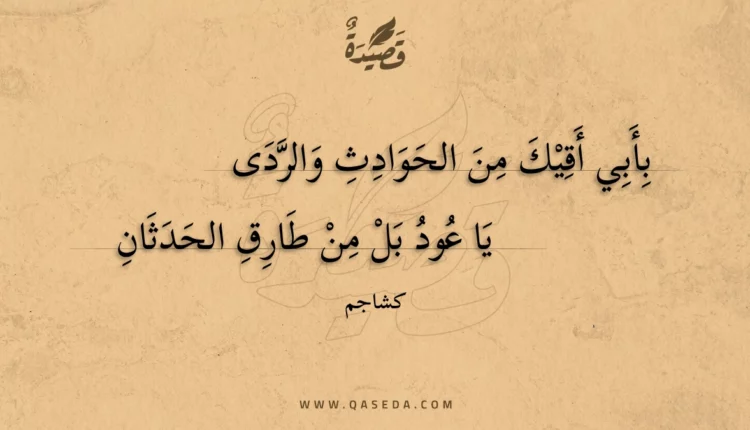 قَصِيدَةٌ
بِأَبِي أَقِيْكَ مِنَ الحَوَادِثِ وَالرَّدَى
يَا عُودُ بَلْ مِنْ طَارِقِ الحَدَثَانِ
كشاجم
WWW.QASEDA.COM